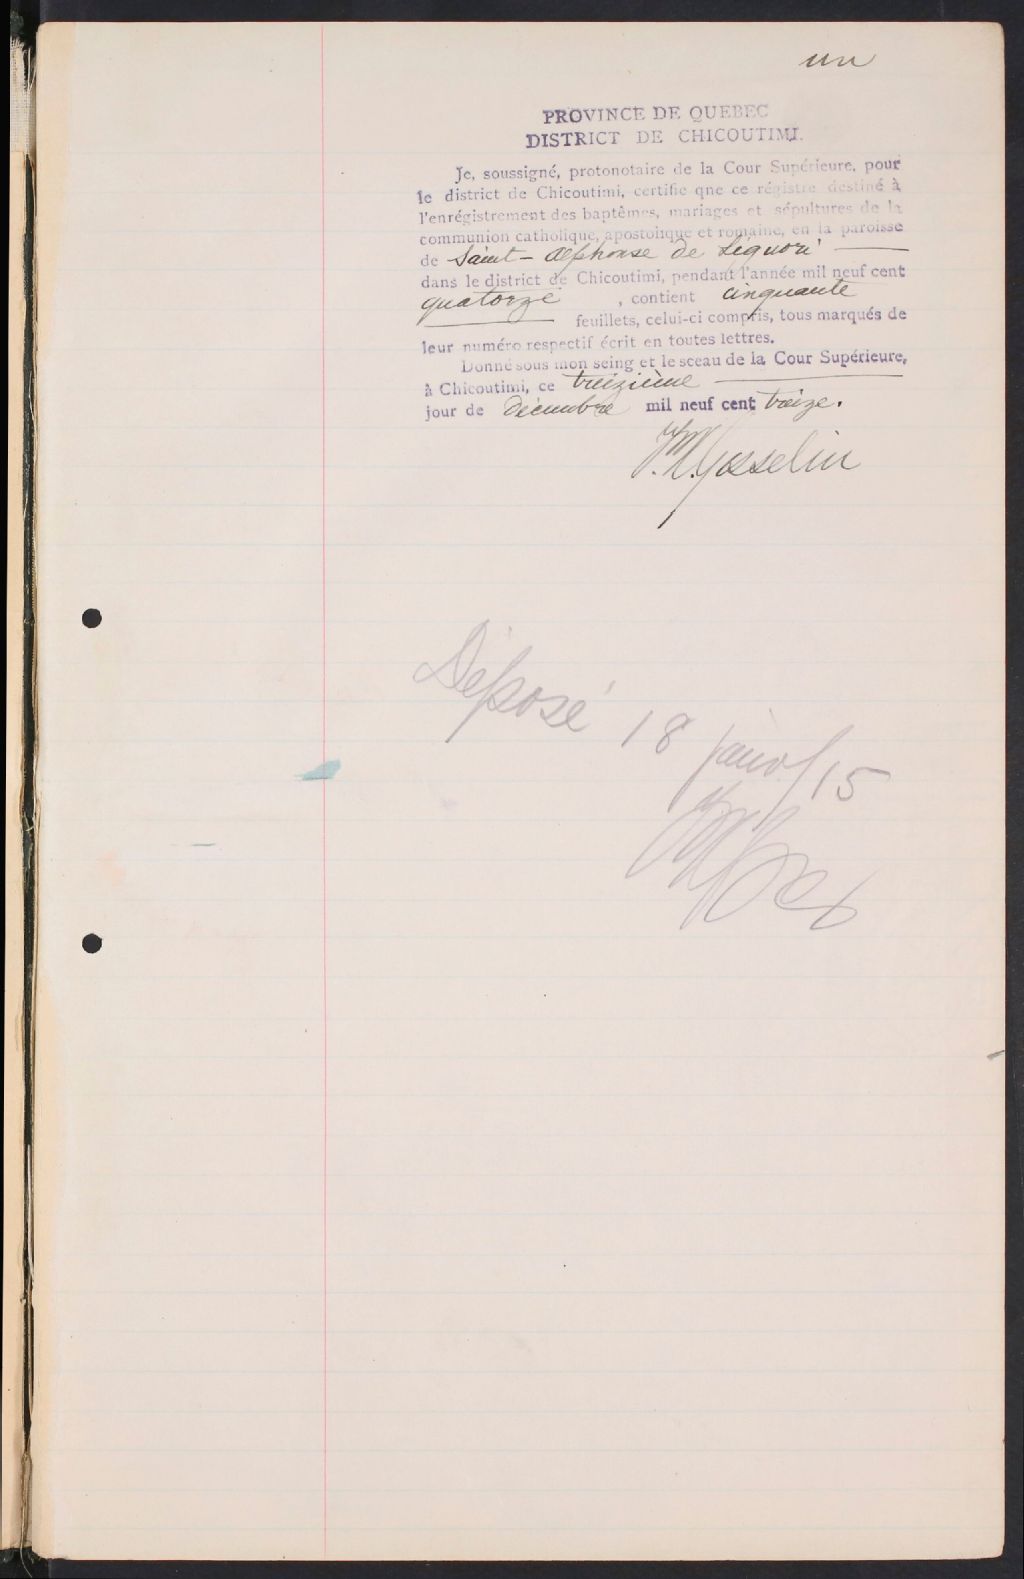 un
PROVINCE DE QUEBEC
DISTRICT DE CHICOUTIMI.
Je, soussigné, protonotaire de la Cour Supérieure, pour
le district de Chicoutimi, certifie qne ce régistre destiné à
l'enrégistrement des baptêmes, mariages et sépultures de la
communion catholique, apostolique et romaine, en la paroisse
de Saint-Alphonse de Liguori
dans le district de Chicoutimi, pendant l'année mil neuf cent
quatorze , contient cinquante
feuillets, celui-ci compris, tous marqués de
leur numéro respectif écrit en toutes lettres.
Donné sous mon seing et le sceau de la Cour Supérieure,
à Chicoutimi, ce treizième
jour de décembre mil neuf cent treize.
Gosselin
Déposé 18 janv/15